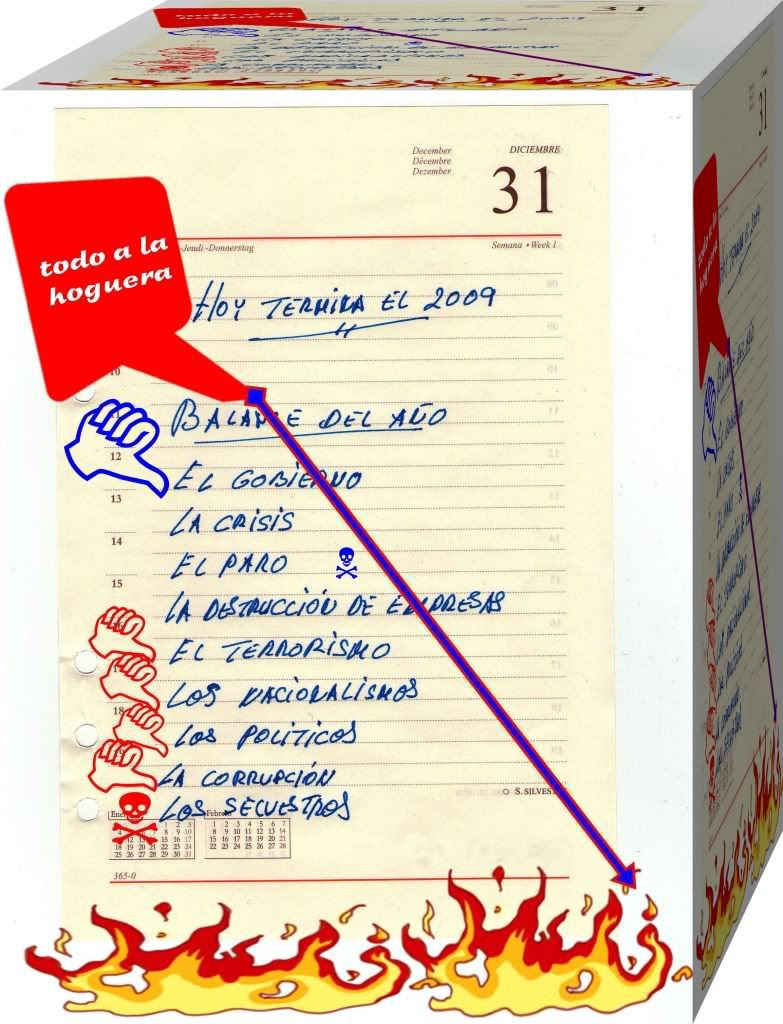 December
Décembre
Dezember
DICIEMBRE
31
Jeudi-Donnerstag
Semana • Week 1
todo a la
hoguera
HOY TERMINA EL 2009
BALANCE DEL AÑO
EL GOBIERNO
LA CRISIS
EL PARO
LA DESTRUCCIÓN DE EMPRESAS
EL TERRORISMO
LOS NACIONALISMOS
LOS POLITICOS
LA CORRUPCIÓN
LOS SECUESTROS
10
11
12
13
14
15
18
S. SILVEST
Febrero
1 2 3 4 5 6 7
8 9 10 11 12 13 14
15 16 17 18 19 20 21
22 23 24 25 26 27 28
18 19 20 21 22 23 24
25 26 27 28 29 30 31
365-0